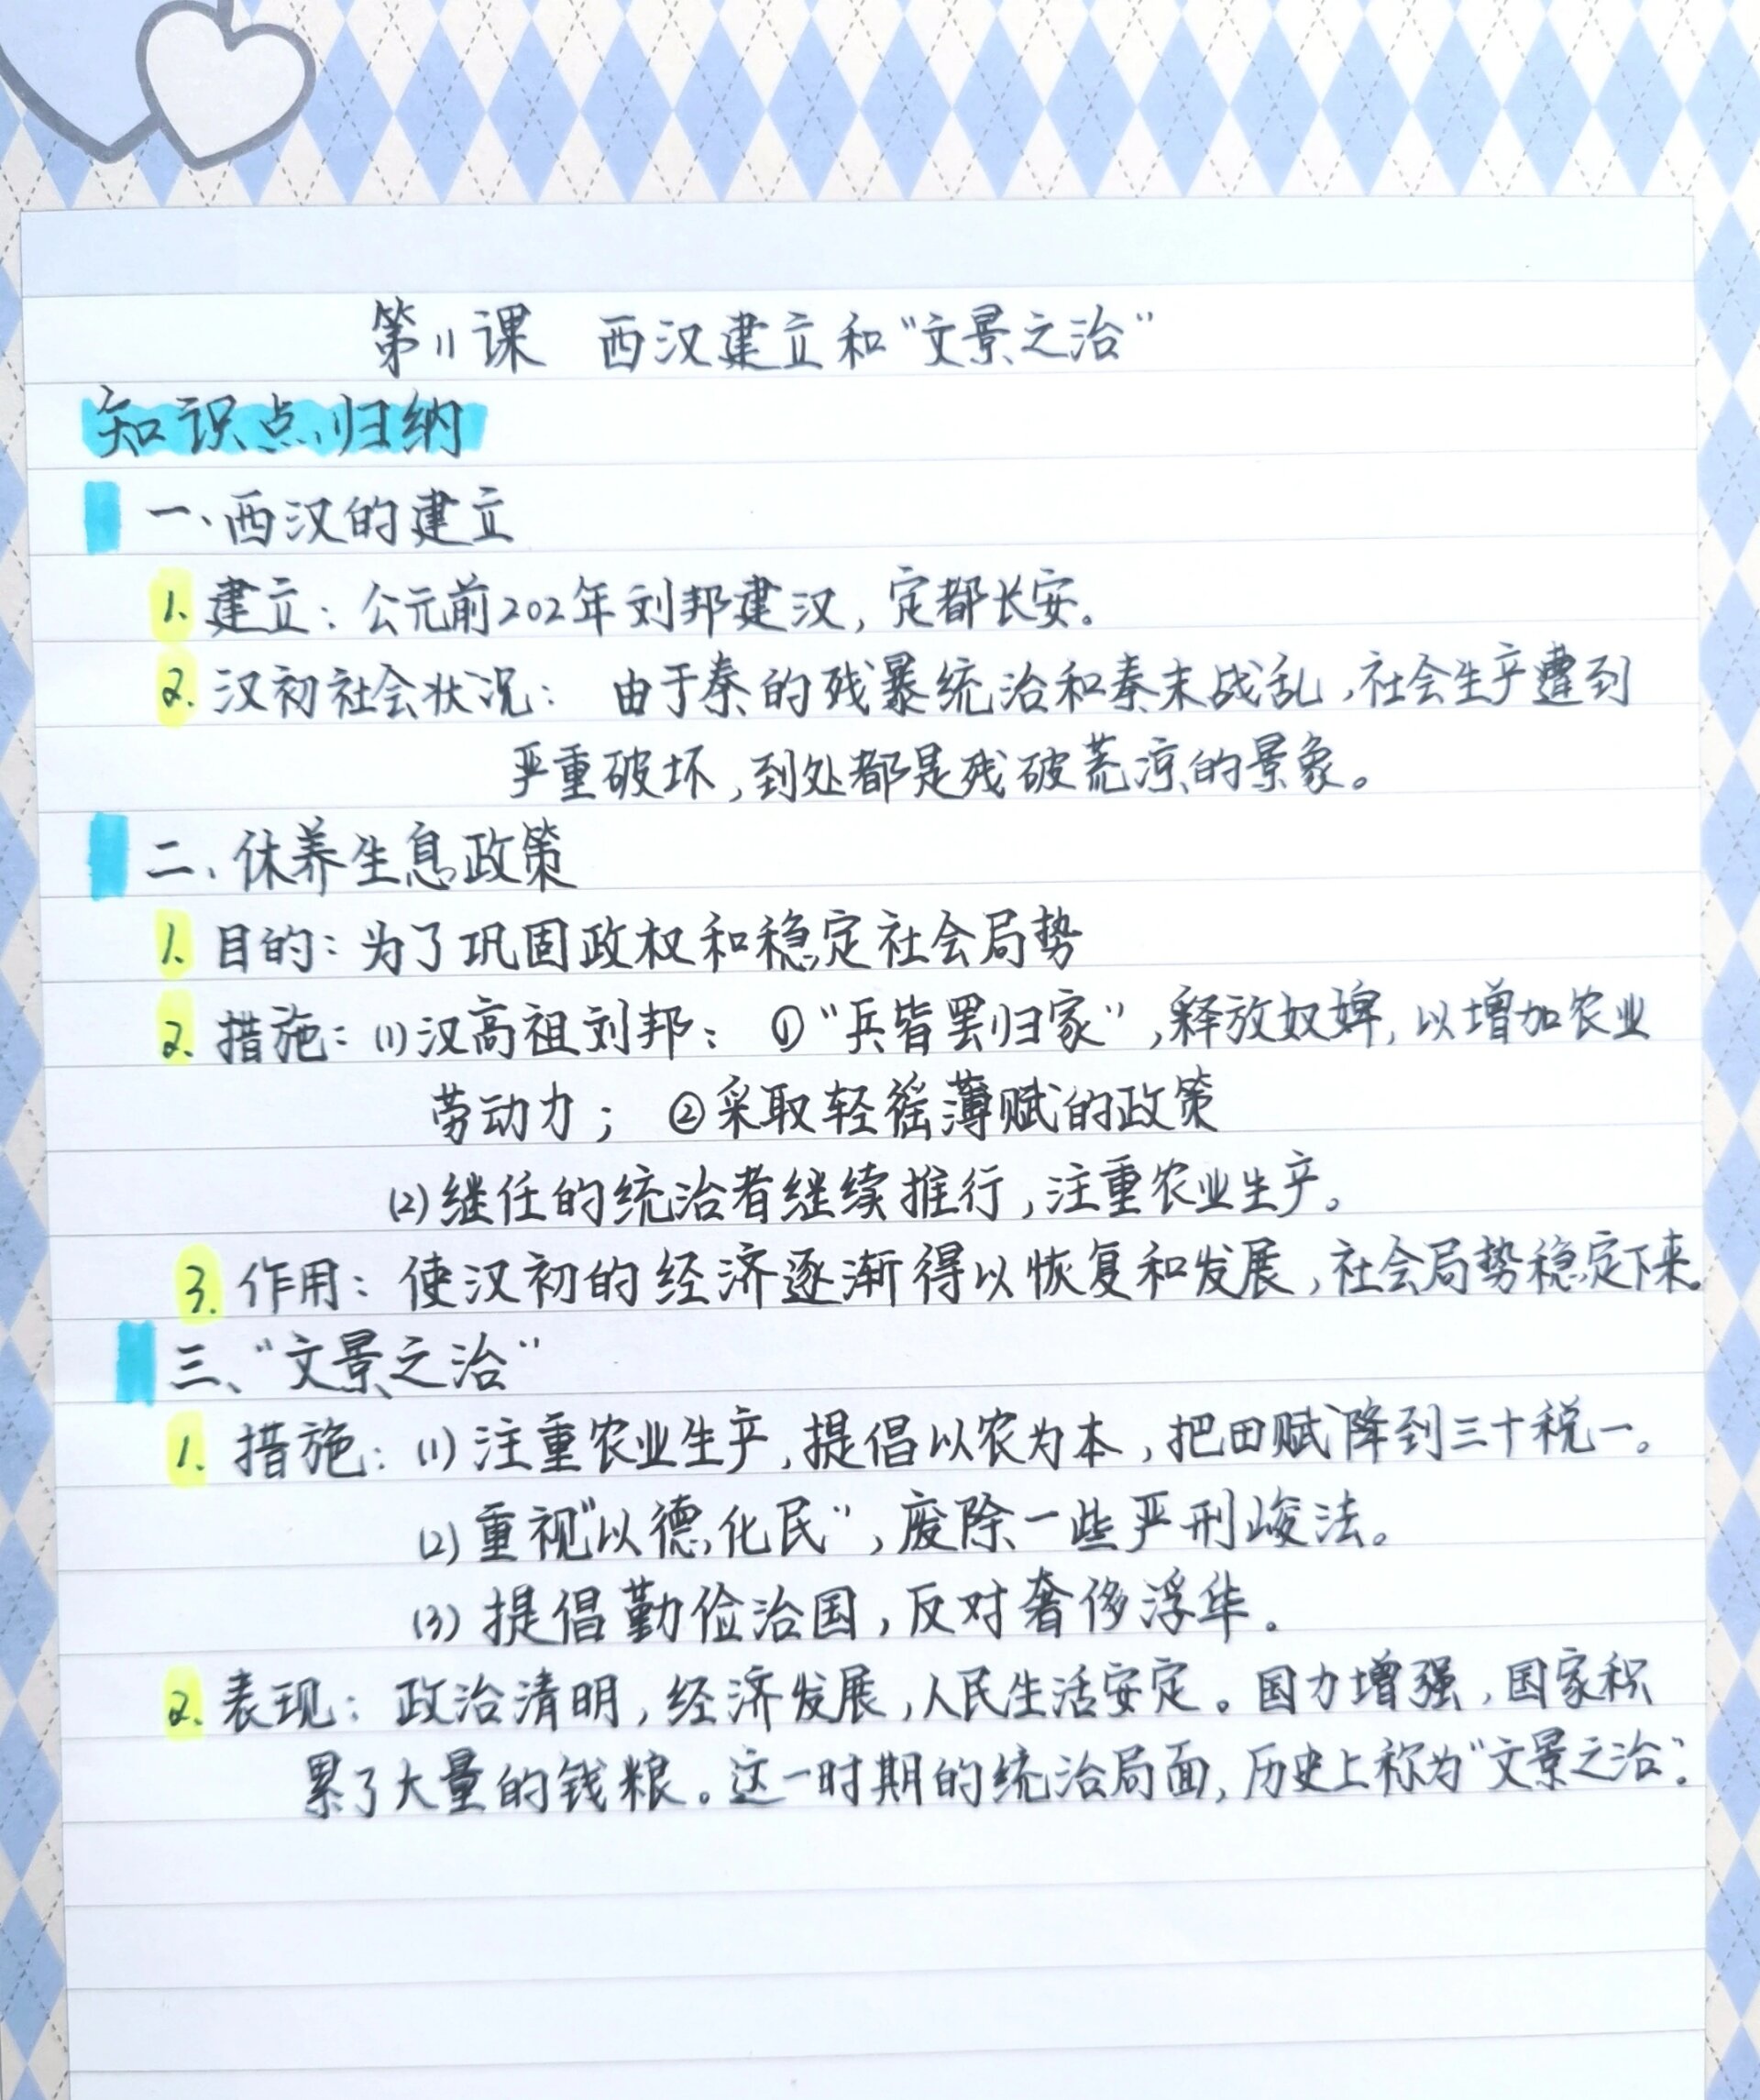 第11课 西汉建立和“文景之治”
知识点归纳
一、西汉的建立
1. 建立：公元前202年刘邦建汉，定都长安。
2. 汉初社会状况： 由于秦的残暴统治和秦末战乱，社会生产遭到
严重破坏，到处都是残破荒凉的景象。
二、休养生息政策
1. 目的：为了巩固政权和稳定社会局势
2. 措施：(1)汉高祖刘邦： ①“兵皆罢归家”，释放奴婢，以增加农业
劳动力； ②采取轻徭薄赋的政策
(2)继任的统治者继续推行，注重农业生产。
3. 作用：使汉初的经济逐渐得以恢复和发展，社会局势稳定下来。
三、“文景之治”
1. 措施：(1)注重农业生产，提倡以农为本，把田赋降到三十税一。
(2)重视“以德化民”，废除一些严刑峻法。
(3)提倡勤俭治国，反对奢侈浮华。
2. 表现：政治清明，经济发展，人民生活安定。国力增强，国家积
累了大量的钱粮。这一时期的统治局面，历史上称为“文景之治”.